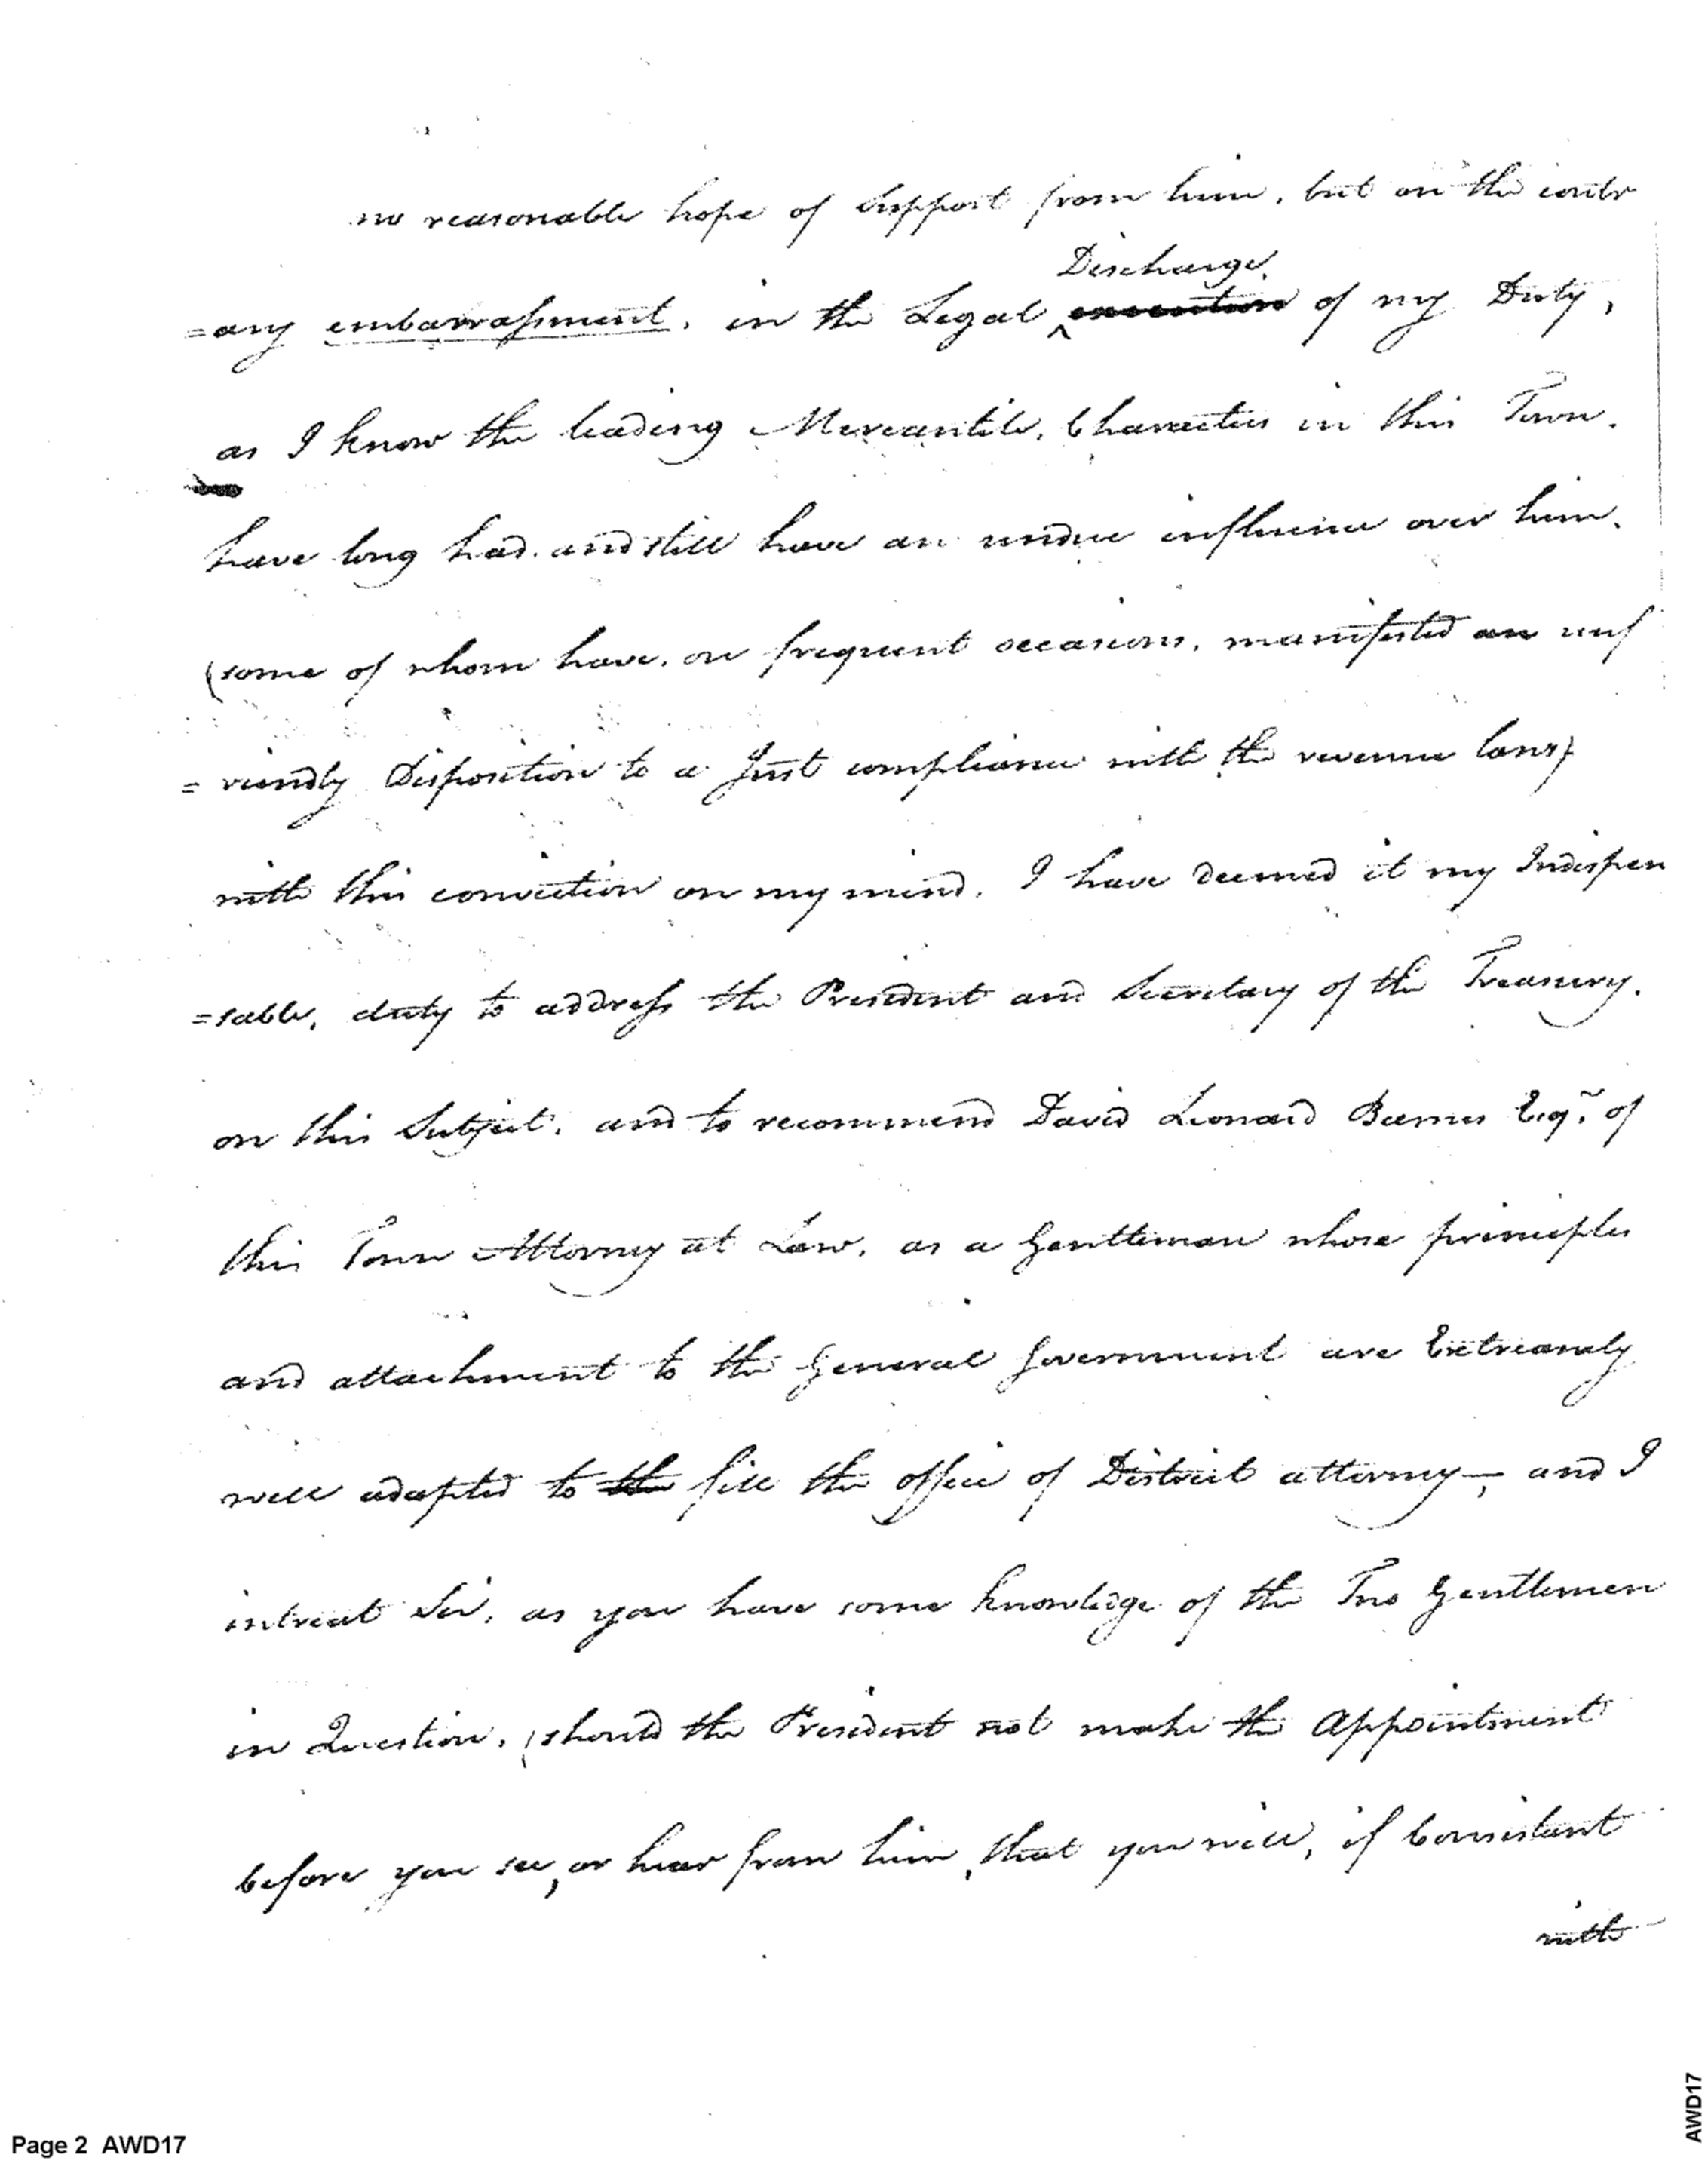 no reasonable hope of support from him, but on the contr
Discharge
=any embarrassment, in the Legal ^ execution of my Duty,
as I know the leading Mercantile, Characters in this Town.
have long had and still have an undue influence over him.
(some of whom have, on frequent occasions, manifested an unf
=riendly Disposition to a Just compliance with the revenue laws)
with this conviction on my mind, I have deemed it my Indispen
=sable, duty to address the President and Secretary of the Treasury.
on this Subject, and to recommend David Leonard Barnes Esqr. of
this Town Attorney at Law, as a Gentleman whose principles
and attachment to the General Government are Extreamely
well adapted to the fill the office of District attorney—, and I
intreat Sir, as you have some knowledge of the Two Gentlemen
in Question, (should the President not make the Appointment
before you see, or hear from him, that you will, if Consistant
with
Page 2 AWD17
AWD17